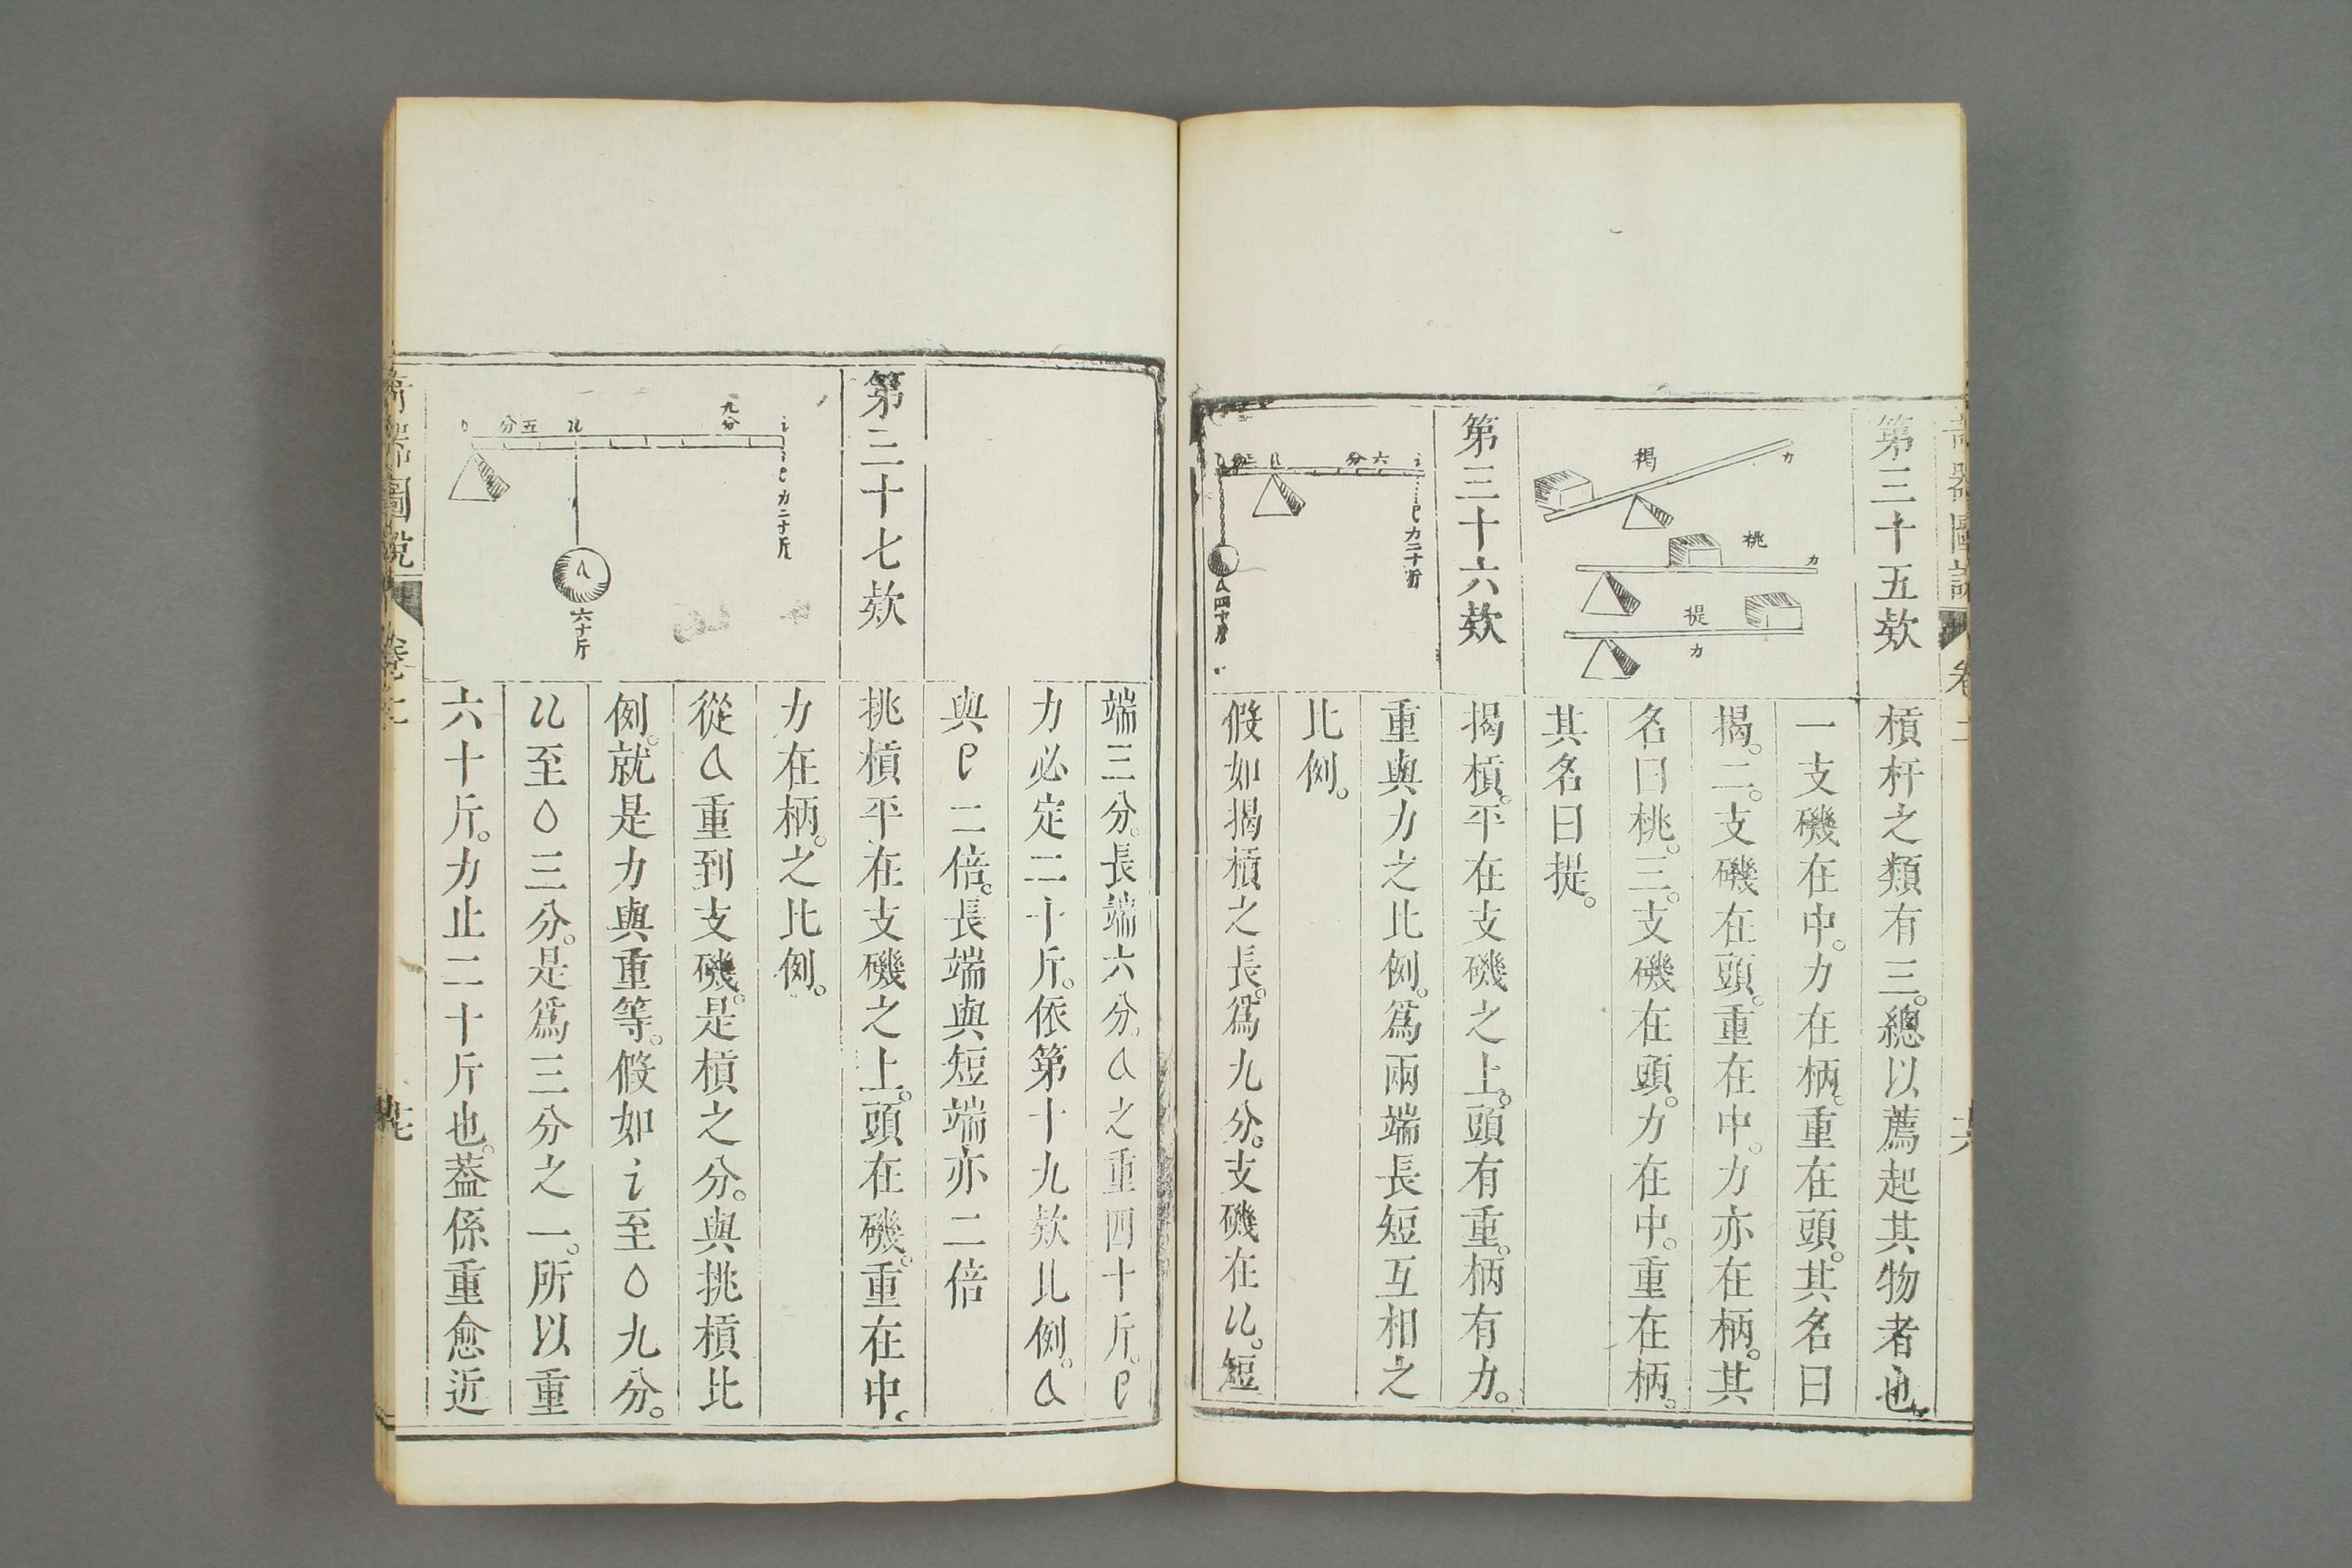 第三十五欵
槓杆之類有三。總以薦起其物者也。
一支磯在中。力在柄。重在頭。其名曰
揭。二。支磯在頭。重在中。力亦在柄。其
名曰挑。三。支磯在頭。力在中。重在柄。
其名曰提。
揭
力
挑
力
提
力
第三十六欵
揭槓。平在支磯之上。頭有重。柄有力。
重與力之比例。爲兩端長短互相之
比例。
六分
力二十斤
四十斤
假如揭槓之長。爲九分。支磯在𠃊。短
端三分。長端六分。之重四十斤。
力必定二十斤。依第十九欵比例。
與二倍。長端與短端亦二倍
第三十七欵
挑槓平在支磯之上。頭在磯。重在中。
力在柄。之比例。
九分
五分
力二十斤
六十斤
從重到支磯。是槓之分。與挑槓比
例。就是力與重等。假如至九分。
至三分。是爲三分之一。所以重
六十斤。力止二十斤也。葢係重愈近